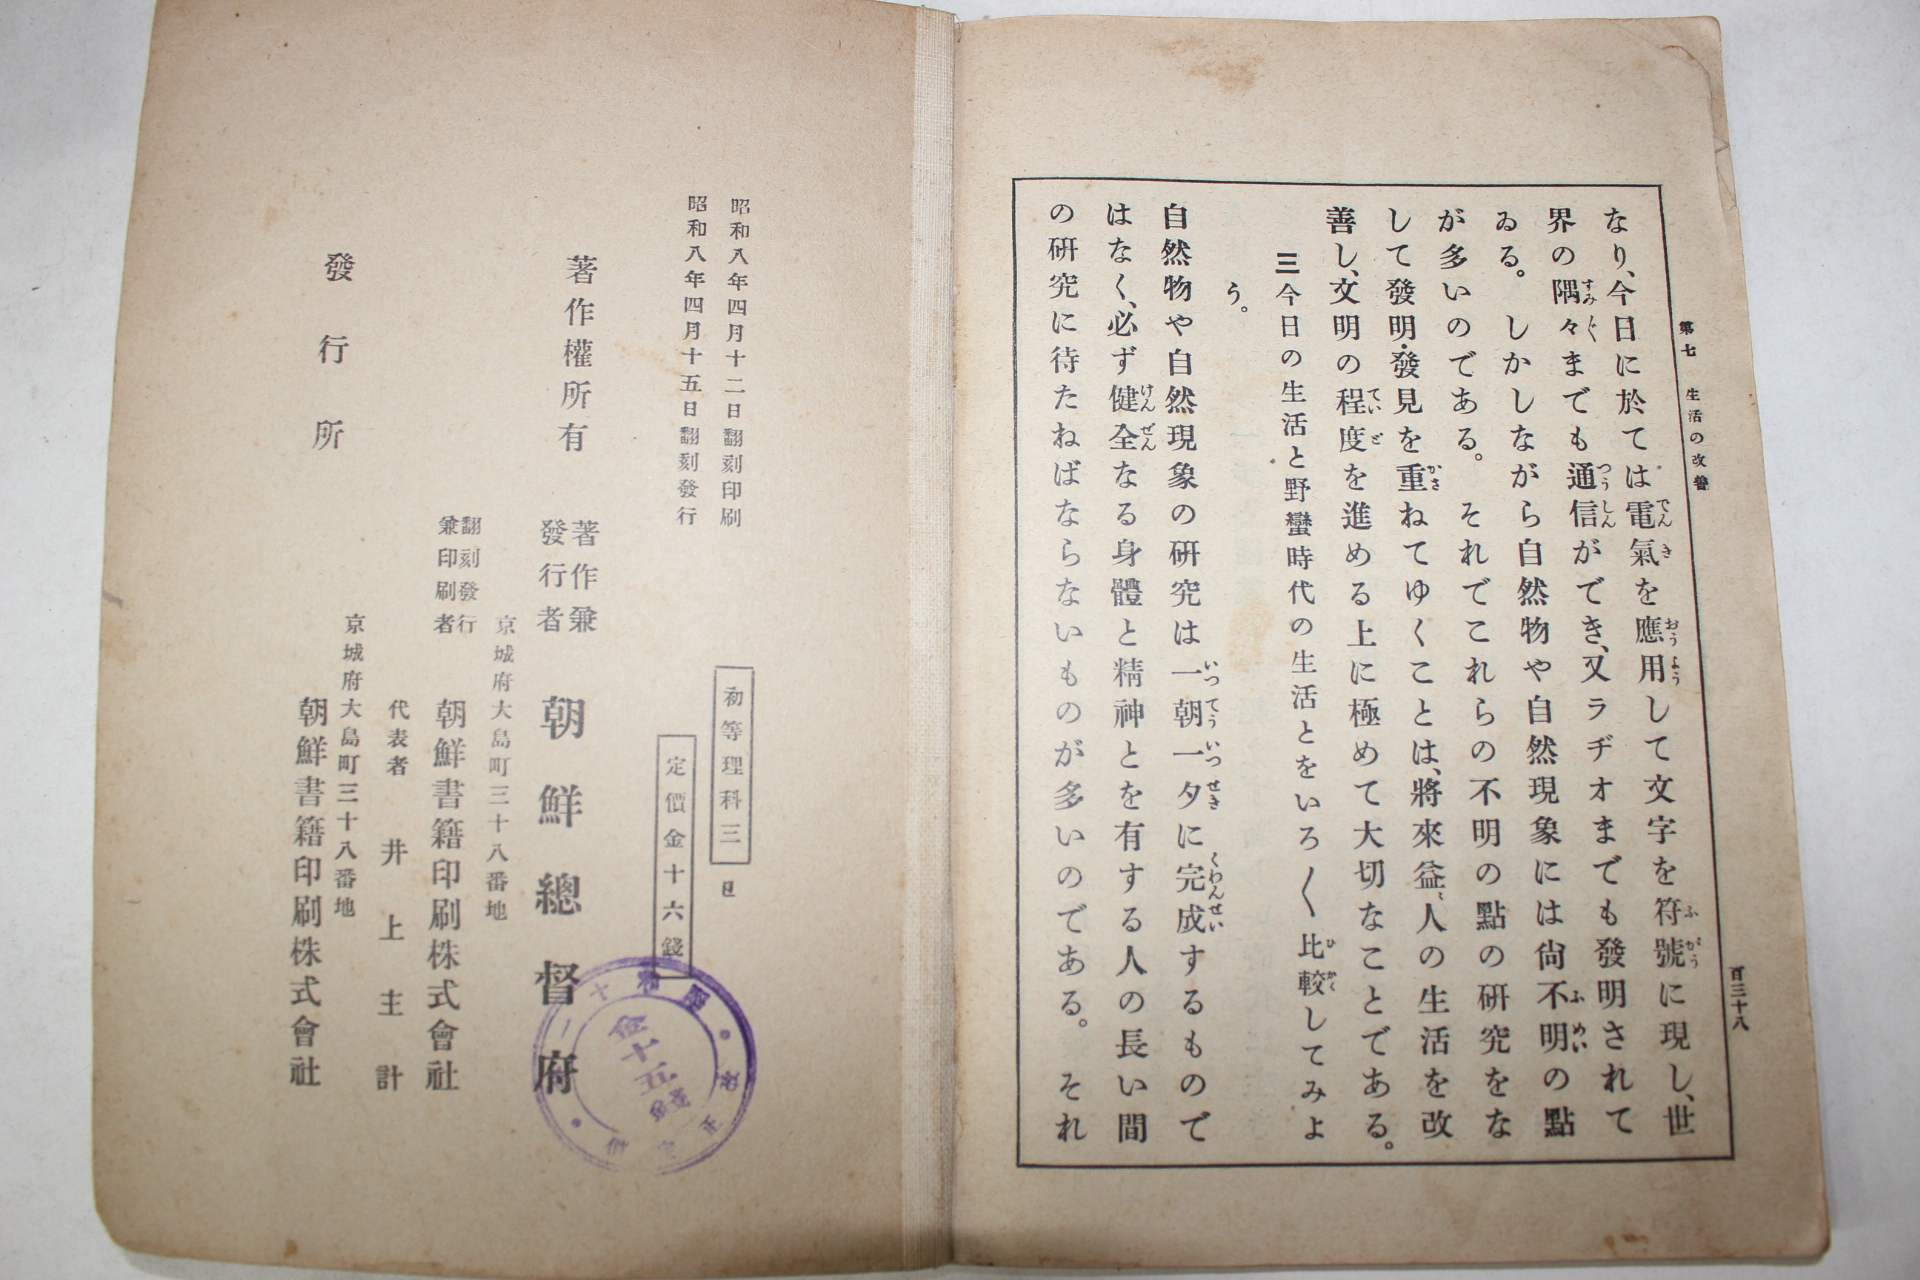 第七 生活の改善
百三十八
なり、今日に於ては電氣を應用して文字を符號に現し、世
界の隅々までも通信ができ、又ラヂオまでも發明されて
ゐる。しかしながら自然物や自然現象には尙不明の點
が多いのである。それでこれらの不明の點の研究をな
して發明・發見を重ねてゆくことは、將來益〻人の生活を改
善し、文明の程度を進める上に極めて大切なことである。
三 今日の生活と野蠻時代の生活とをいろ〳〵比較してみよ
う。
自然物や自然現象の硏究は一朝一夕に完成するもので
はなく、必ず健全なる身體と精神とを有する人の長い間
の硏究に待たねばならないものが多いのである。それ
昭和八年四月十二日翻刻印刷
昭和八年四月十五日翻刻發行
初等理科三
定價金十六錢
著作權所有
著作兼
發行者
朝鮮總督府
京城府大島町三十八番地
翻刻發行
兼印刷者
朝鮮書籍印刷株式會社
代表者 井上主計
京城府大島町三十八番地
發行所
朝鮮書籍印刷株式會社
金十五錢